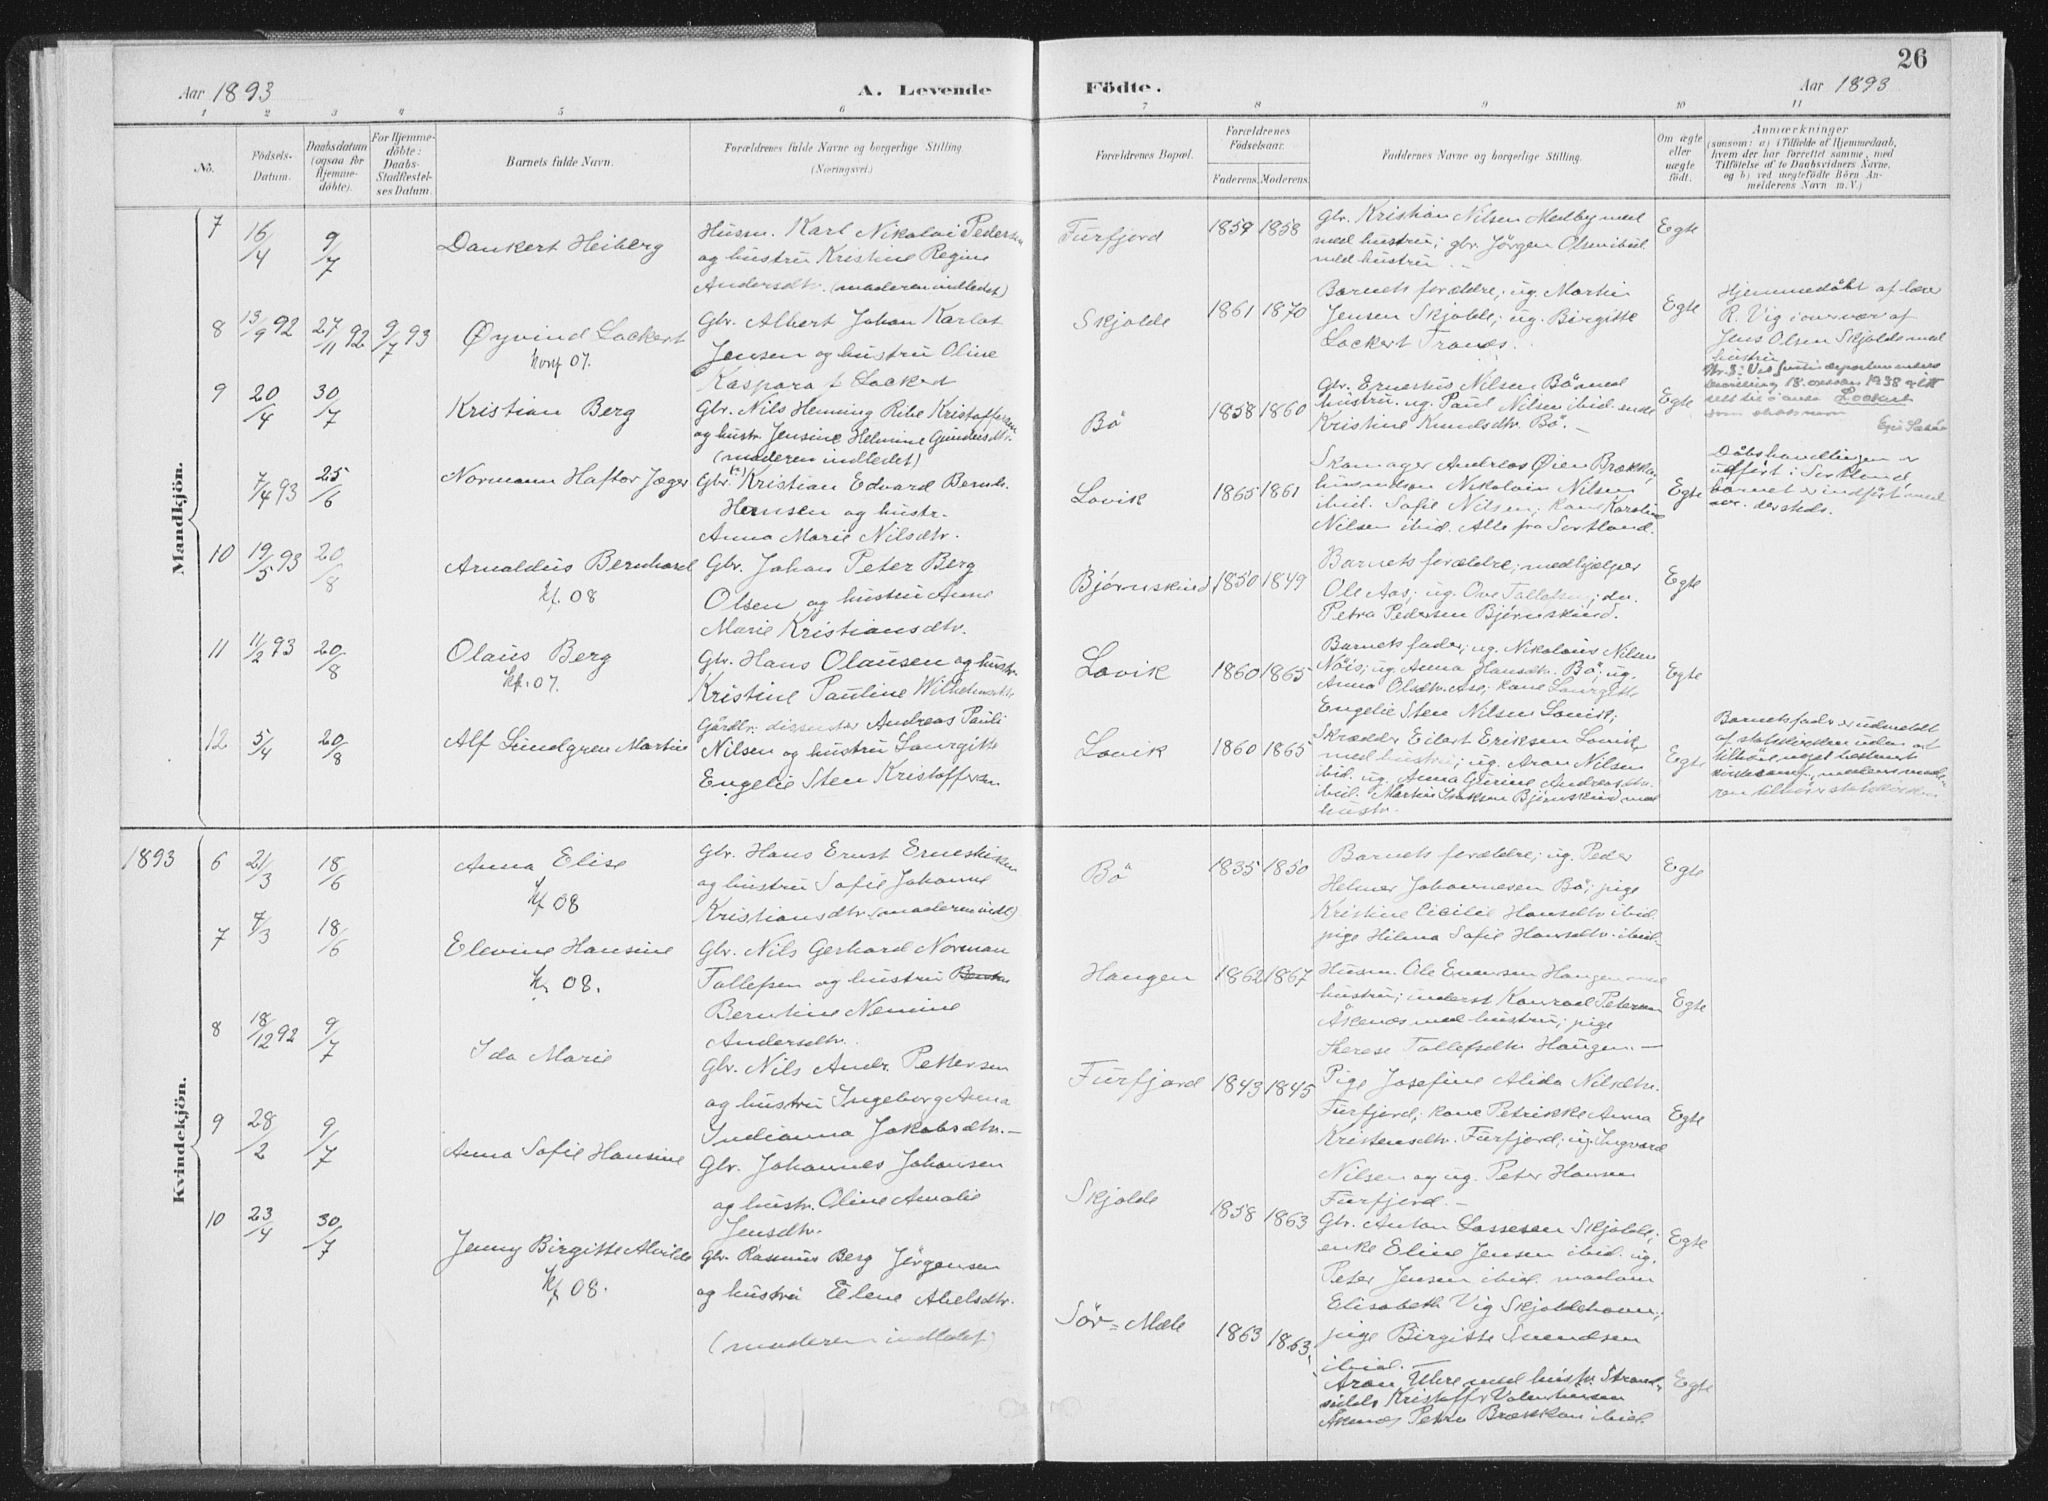 26
Aar 1893
A. Levende
Födte.
Aar 1893
1 2 3 4 5 6 7 8 9 10 11
No.
Födsels-
Datum.
Daabsdatum
(ogsaa for
Hjemme-
döbte).
For Hjemme-
döbte:
Daabs-
Stadfæstel-
ses Datum.
Barnets fulde Navn.
Forældrenes fulde Navne og borgerlige Stilling
(Næringsvei.)
Forældrenes Bopæl.
Forældrenes
Födselsaar.
Faderens. Moderens.
Faddernes Navne og borgerlige Stilling.
Om ægte
eller
uægte
født.
Anmærkninger
(saasom: a) i Tilfælde af Hjemmedaab,
hvem der har forrettet samme, med
Tilføielse af to Daabsvidners Navne,
og b) ved uægtefödte Börn An-
melderens Navn m. V.)
Mandkjön.
7 16/4 9/7 Dankert Heiberg
Husm. Karl Nikolai Pedersen
og hustru Kristine Regine
Andersdtr. (moderen indledet)
Furfjord 1859 1858
Gbr. Kristian Nilsen Medby med
med hustru; gbr. Jörgen Olsen ibid.
med hustru
Egte
8 13/9 92 27/11 92 9/7 93 Øyvind Lockert
Konf 07.
Gbr. Albert Johan Karlot
Jensen og hustru Oline
Kaspara f. Lockert
Skjolde 1861 1870
Barnets forældre; ug. Martin
Jensen Skjolde; ug. Birgitte
Lockert Tranæs.
Egte
Hjemmedøbt af lærer
R. Vig i overvær af
Jens Olsen Skjolde med
hustru
9 20/4 30/7 Kristian Berg
Gbr. Nils Henning Ribe Kristoffersen
og hustr. Jensine Helmine Gundersdtr.
(moderen indledet)
Bö 1858 1860
Gbr. Ernestus Nilsen Bö med
hustru. ug. Paul Nilsen ibid. enke
Kristine Knudsdtr. Bö.
Egte
Lockert
som slektsnavn
7/4 93 25/6 Normann Haftor Jæger
Gbr. Kristian Edvard Bernh.
Hansen og hustr.
Anna Marie Nilsdtr.
Lovik 1865 1861
Skomager Andreas Øien Brækkan,
Nikolai Nilsen
ibid. Sofie Nilsen; kone Karoline
Nilsen ibid. Alle fra Sortland.
Egte
Dåbshandlingen er
udført i Sortland,
barnet er indført med
nr. dersteds.
10 19/5 93 20/8 Arnoldus Bernhard
Kf. 08
Gbr. Johan Peter Berg
Olsen og hustru Anne
Marie Kristiansdtr.
Bjørnskind 1850 1849
Barnets forældre; medhjelper
Ole Aas; ug. Ove Tollefsen; do.
Petra Pedersen Bjørnskind.
Egte
11 11/2 93 20/8 Olaus Berg
Kf. 07.
Gbr. Hans Olausen og hustr.
Kristine Pauline Wilhelmsdtr.
Lovik 1860 1865
Barnets fader; ug. Nikolaus Nilsen
Nöis; ug. Anna Hansdtr. Bö; ug.
Anna Olsdtr. Åse; kone Lauritte
Engelie Sten Nilsen Lovik;
Egte
12 5/4 20/8 Alf Lundgren Martin
Gårdbr. dissenter Andreas Pauli
Nilsen og hustru Laurgitte
Engelie Sten Kristoffersen
Lovik 1860 1865
Skrædder Eilert Eriksen Lovik
med hustru; ug. Aron Nilsen
ibid. ug. Anna Gurine Andreasdtr.
ibid. Martin Isaksen Bjørnskind med
hustr.
Egte
Barnets fader er udmeldt
af statskirken uden at
tilhöre noget bestemt
kirkesamf., medens mode-
ren tilhører statskirken
Kvindekjön.
1893 6 21/3 18/6 Anna Elise
Kf 08
Gbr. Hans Ernst Erneskissen
og hustru Sofie Johanne
Kristiansdtr. (moderen indl.)
Bö 1835 1850
Barnets forældre; ug. Peder
Helmer Johannesen Bö; pige
Kristine Cicilie Hansdtr. ibid.
pige Hilma Sofie Hansdtr. ibid.
Egte
7 7/3 18/6 Elevine Hansine
Kf 08.
Gbr. Nils Gerhard Norman
Tollefsen og hustru
Berntine Nemine
Andersdtr.
Haugen 1862 1867
Husm. Ole Evensen Haugen med
hustru; inderst Konrad Petersen
Åkenæs med hustru; pige
Therese Tollefsdtr Haugen.
Egte
8 18/12 92 9/7 Ida Marie
Gbr. Nils Andr. Pettersen
og hustru Ingeborg Anna
Indianna Jakobsdtr.
Furfjord 1843 1845
Pige Josefine Alida Nilsdtr.
Furfjord; kone Petrikke Anna
Kristensdtr. Furfjord; ug. Ingvard
Nilsen og ug. Peter Hansen
Furfjord.
Egte
9 28/2 9/7 Anna Sofie Hansine
Gbr. Johannes Johansen
og hustr. Oline Amalie
Jensdtr.
Skjolde 1858 1863
Gbr. Anton Lassesen Skjolde;
enke Eline Jensen ibid. ug.
Peter Jensen ibid. madam
Elisabeth Vig Skjoldehavn;
pige Birgitte Svendsen
ibid.
Egte
10 23/4 30/7 Jenny Birgitte Alvilde
Kf 08.
Gbr Rasmus Berg Jörgensen
og hustru Elene Abelsdtr.
(moderen indledet)
Sör-Mele 1863 1863
Aron Uhre med hustr. Strand-
Kristoffer Valentinsen
Åkenæs Petra Brækkan ibid.
Egte